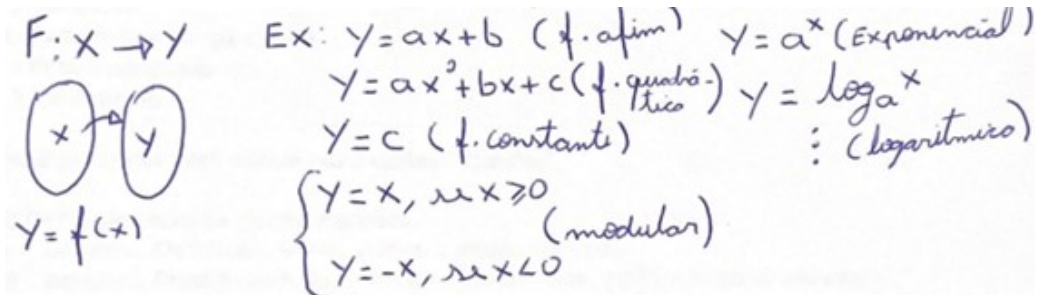 F: X → Y
X Y
Y = f(x)
Ex: Y = ax + b (f. afim)
Y = ax² + bx + c (f. quadrá-
tica)
Y = c (f. constante)
Y = x, se x ≥ 0
(modular)
Y = -x, se x < 0
Y = a^x (Exponencial)
Y = log_a x
: (logarítmica)